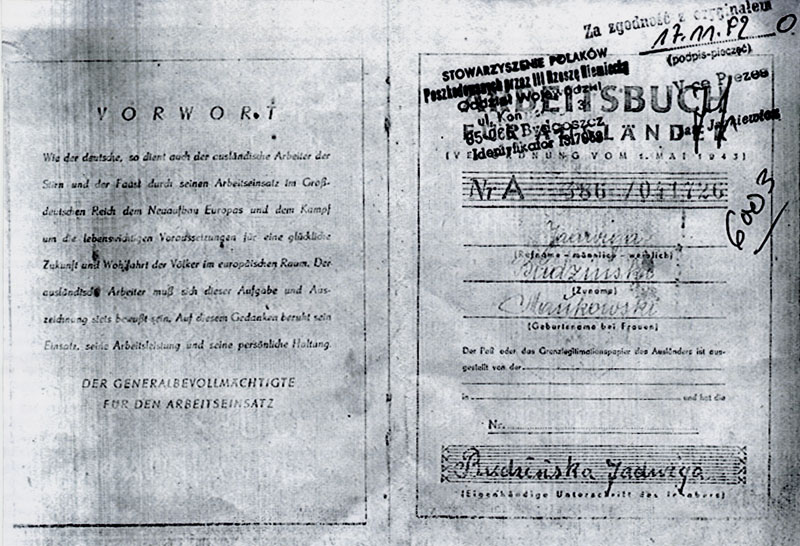 VORWORT
Wie der deutsche, so dient auch der ausländische Arbeiter der
Stirn und der Faust durch seinen Arbeitseinsatz im Groß-
deutschen Reich dem Neuaufbau Europas und dem Kampf
um die lebenswichtigen Voraussetzungen für eine glückliche
Zukunft und Wohlfahrt der Völker im europäischen Raum. Der
ausländische Arbeiter muß sich dieser Aufgabe und Aus-
zeichnung stets bewußt sein. Auf diesem Gedanken beruht sein
Einsatz, seine Arbeitsleistung und seine persönliche Haltung.
DER GENERALBEVOLLMÄCHTIGTE
FÜR DEN ARBEITSEINSATZ
Za zgodność z oryginałem
17.11.92
(podpis-pieczęć)
STOWARZYSZENIE POLAKÓW
Poszkodowanych przez III Rzeszę Niemiecką
Oddział Wojewódzki
ul.
Bydgoszcz
Identyfikator
Vice Prezes
Jan
ARBEITSBUCH
FÜR AUSLÄNDER
(VERORDNUNG VOM 1. MAI 1943)
Nr A 386 /041726
6003
Jadwiga
(Rufname - männlich - weiblich)
Budzinski
(Zuname)
(Geburtsname bei Frauen)
Der Paß oder das Grenzlegitimationspapier des Ausländers ist aus-
gestellt von der
in und hat die
Nr.
Budzińska Jadwiga
(Eigenhändige Unterschrift des Inhabers)